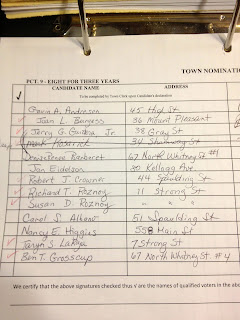 TOWN NOMINATI
PCT. 9 - EIGHT FOR THREE YEARS
CANDIDATE NAME ADDRESS
To be completed by Town Clerk upon Candidate's declaration
✓
Gavin A. Andresen 45 High St
✓ Joan L. Burgess 36 Mount Pleasant
✓ Jerry G. Jr. 38 Gray St
Mark 34 St
Barberet 67 North Whitney St #1
Jan Eidelson 20 Kellogg Ave.
✓ Robert J. Crowner 44 Spaulding St
✓ Richard T. Roznoy 11 Strong St
✓ Susan D. Roznoy " " "
Carol S. Albano 51 Spaulding St
✓ Nancy E. Higgins 558 Main St
✓ Taryn S. LaRaja 7 Strong St
✓ Ben T. Grosscup 67 North Whitney St. #4
We certify that the above signatures checked thus √ are the names of qualified voters in the abo